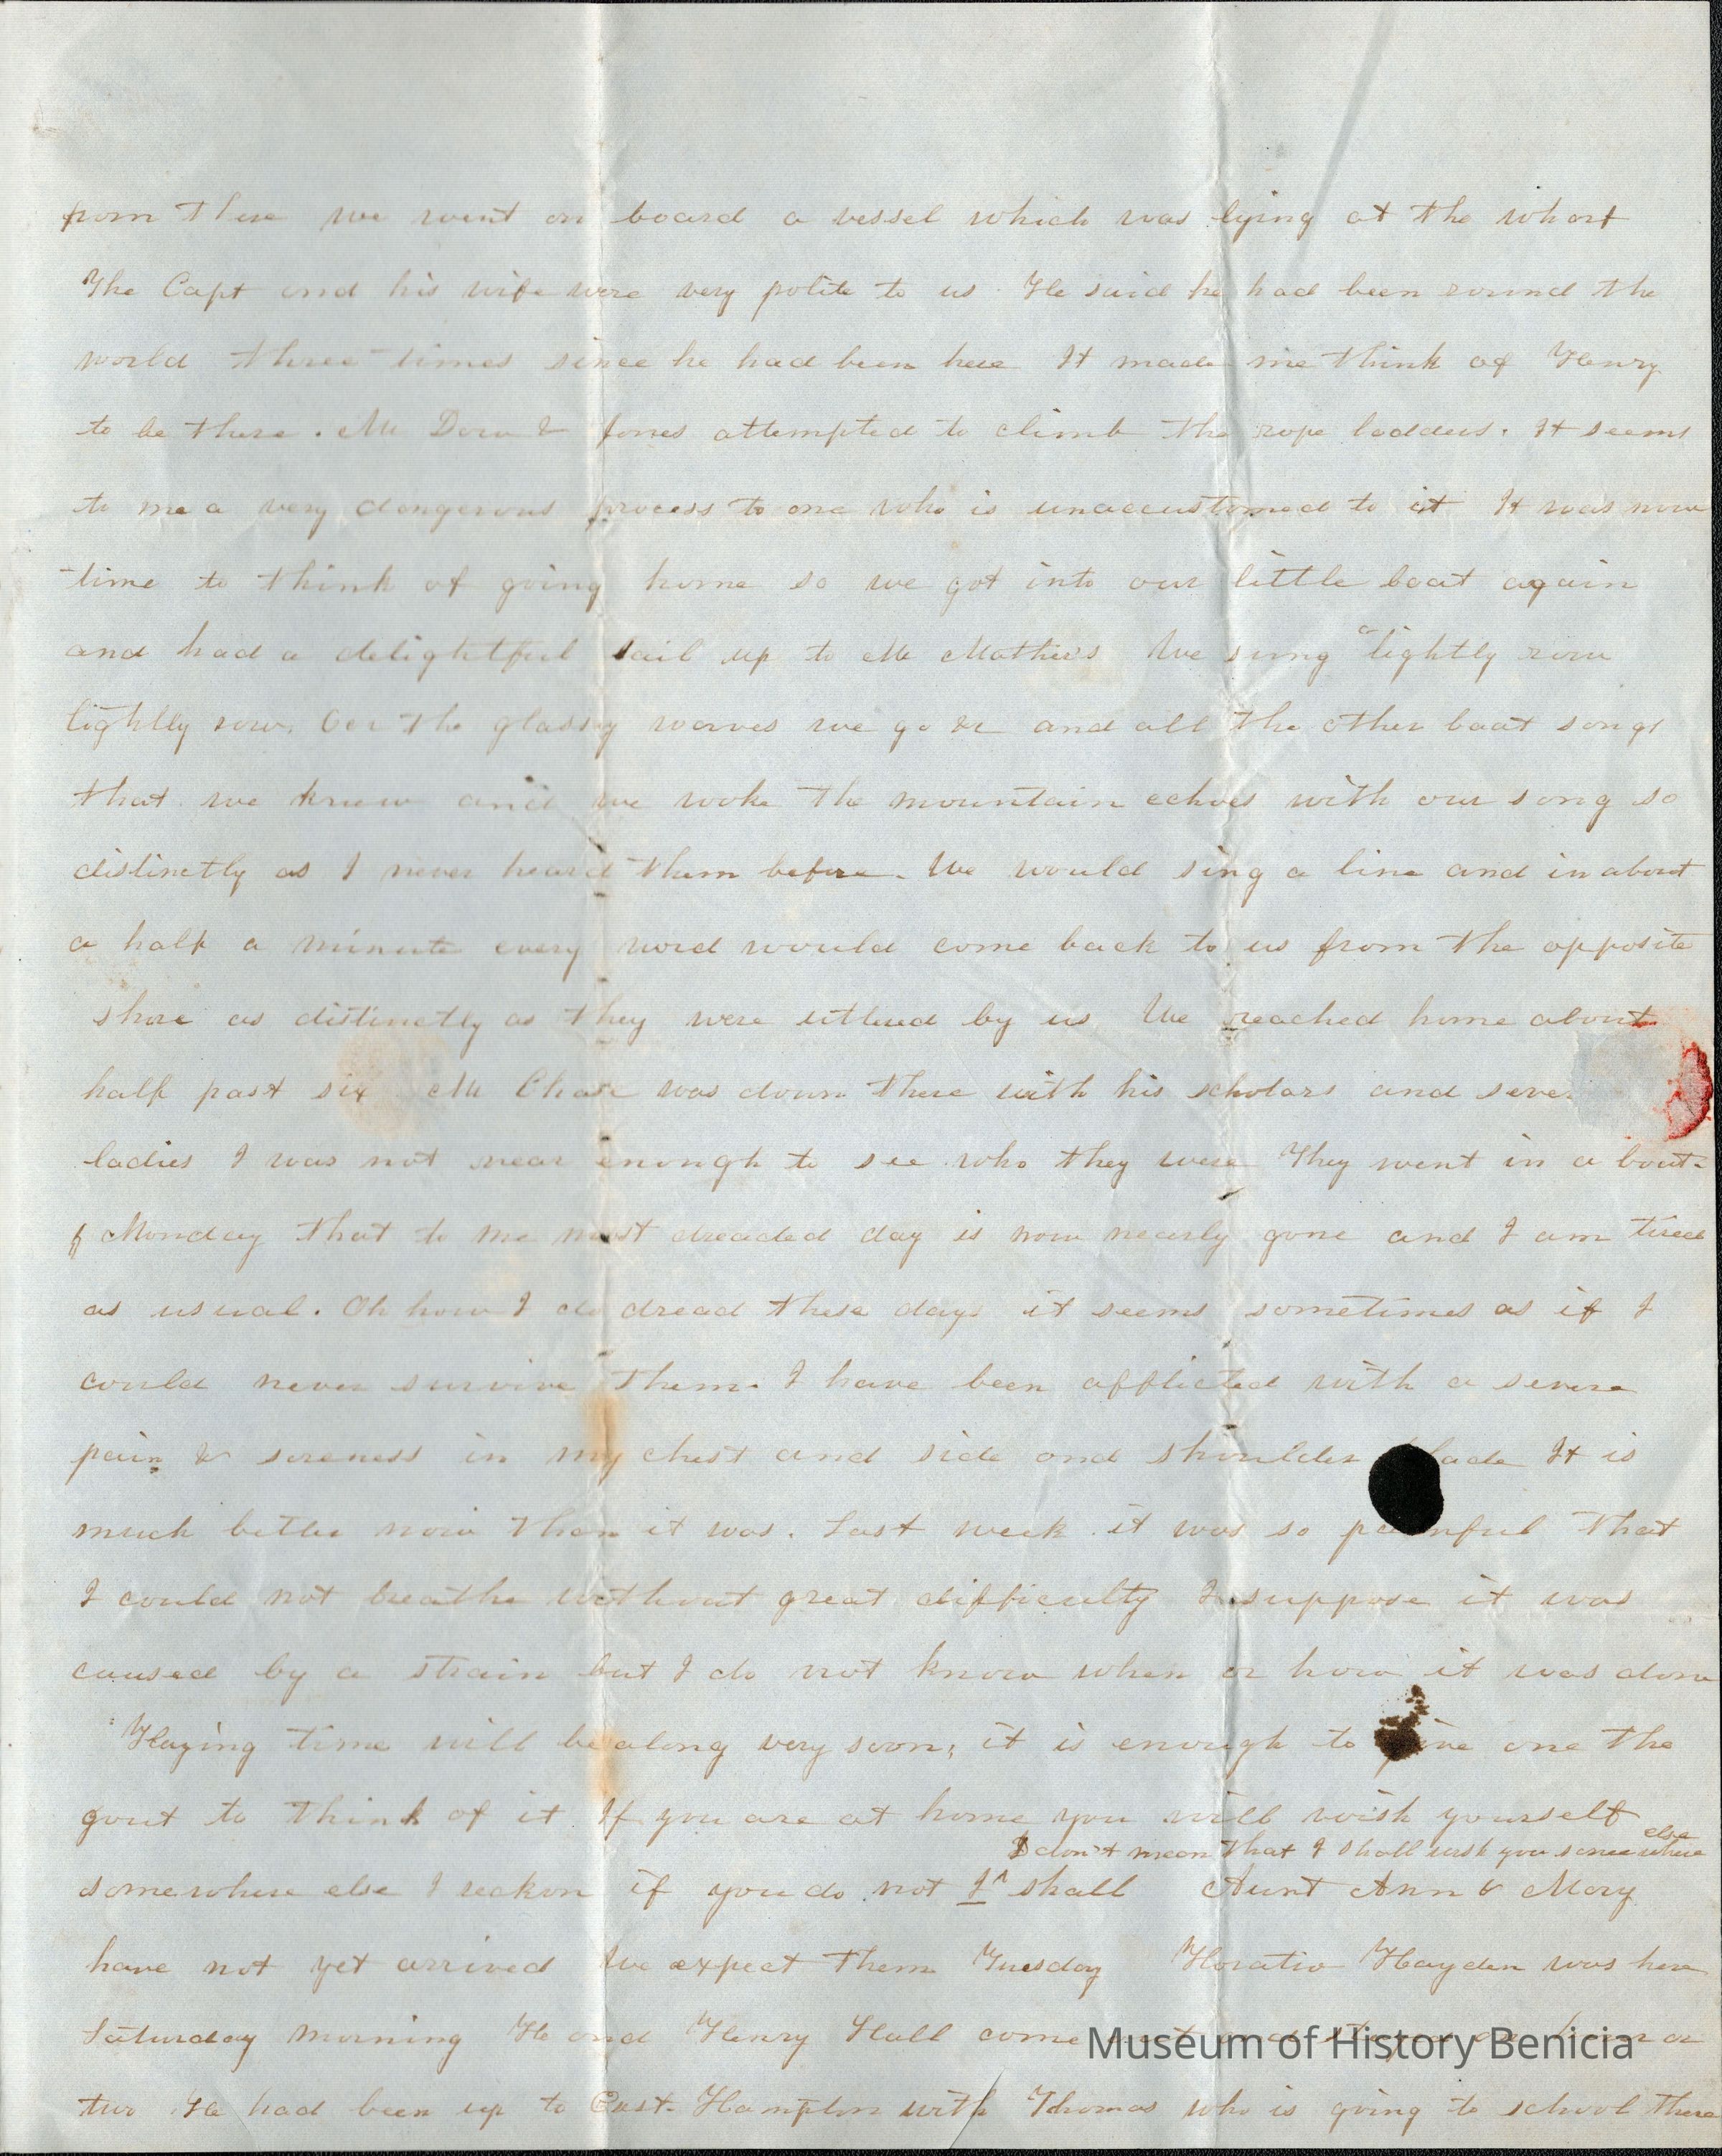 from there we went on board a vessel which was lying at the wharf
The Capt and his wife were very polite to us He said he had been round the
world three times since he had been here It made me think of Henry
to be there. Mr Dow & Jones attempted to climb the rope ladders. It seems
to me a very dangerous process to one who is unaccustomed to it It was now
time to think of going home so we got into our little boat again
and had a delightful sail up to Mr Mathers We sung "lightly row
lightly row. Oer the glassy waves we go &c and all the other boat songs
that we knew and we woke the mountain echoes with our song so
distinctly as I never heard them before. We would sing a line and in about
a half a minute every word would come back to us from the opposite
shore as distinctly as they were uttered by us We reached home about
half past six Mr Chase was down there with his scholars and sever
ladies I was not near enough to see who they were They went in a boat.
Monday that to me most dreaded day is now nearly gone and I am tired
as usual. Oh how I do dread these days it seems sometimes as if I
could never survive them. I have been afflicted with a severe
pain & soreness in my chest and side and shoulder blade It is
much better now than it was. Last week it was so painful that
I could not breathe without great difficulty I suppose it was
caused by a strain but I do not know when or how it was done
Haying time will be along very soon, it is enough to give one the
gout to think of it If you are at home you will wish yourself
I don't mean that I shall wish you somewhere else
somewhere else I reckon if you do not I^ shall Aunt Ann & Mary
have not yet arrived We expect them Tuesday Horatio Hayden was here
Saturday morning He and Henry Hall come and an hour or
two He had been up to East-Hampton with Thomas who is going to school there
Museum of History Benicia